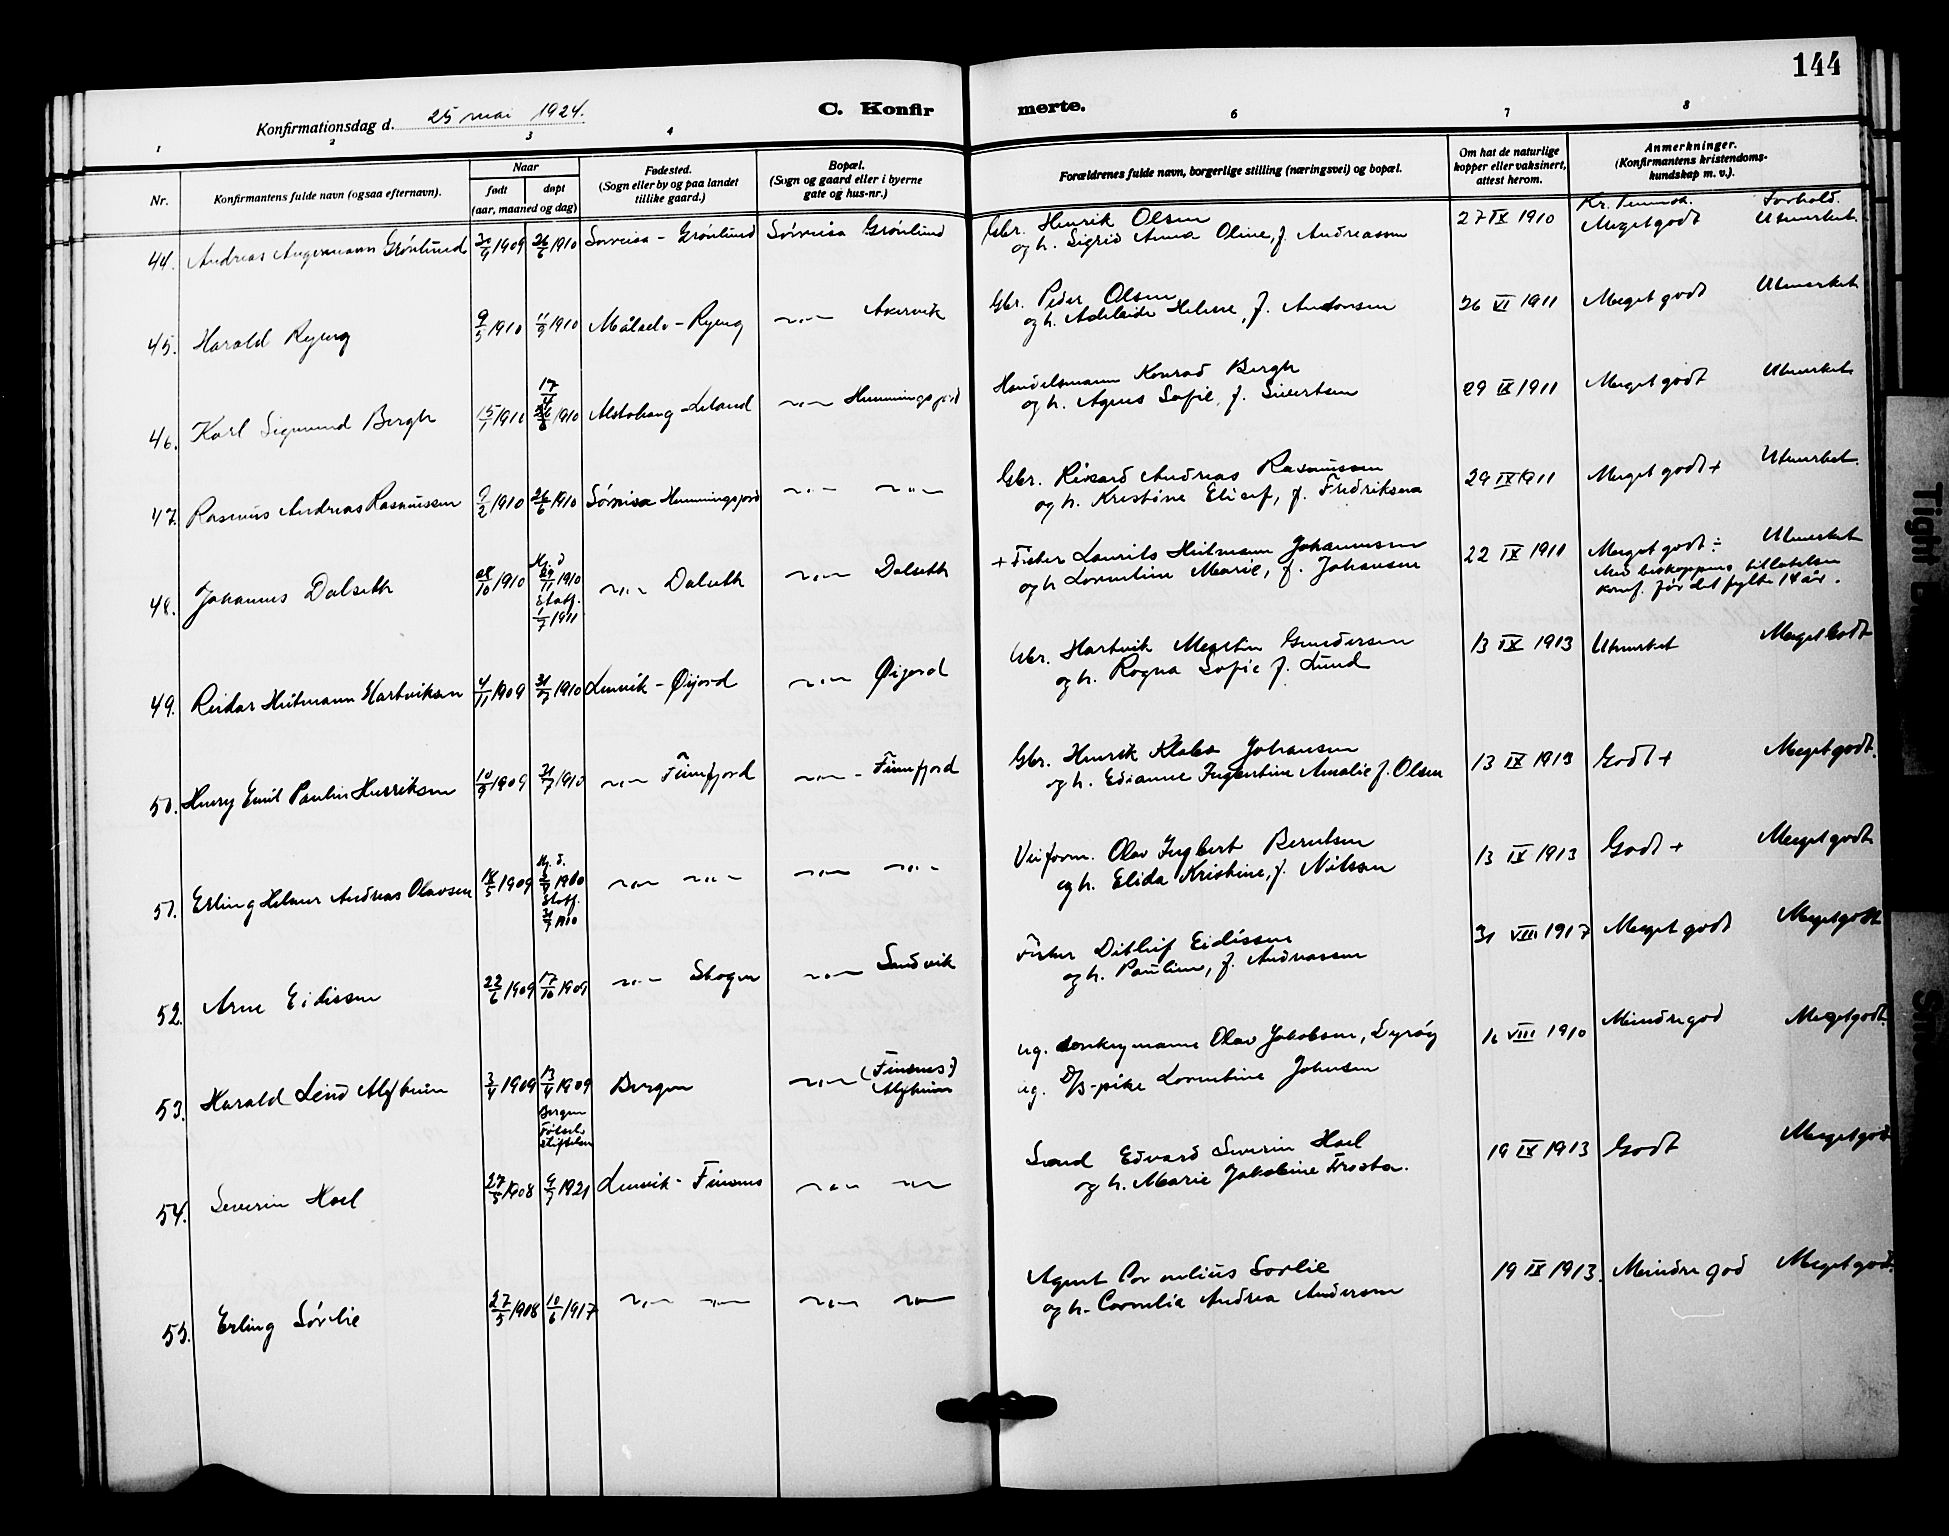 144
Konfirmationsdag d. 25 mai 1924.
C. Konfirmerte.
1 2 3 4 6 7 8
Nr.
Konfirmantens fulde navn (ogsaa efternavn).
Naar
født døpt
(aar, maaned og dag)
Fødested.
(Sogn eller by og paa landet
tillike gaard.)
Bopæl.
(Sogn og gaard eller i byerne
gate og hus-nr.)
Forældrenes fulde navn, borgerlige stilling (næringsvei) og bopæl.
Om hat de naturlige
kopper eller vaksinert,
attest herom.
Anmerkninger.
(Konfirmantens kristendoms-
kundskap m. v.).
Kr. kunnsk. Forhold.
44. Andreas Angermann Grönlund 26/6 1910 Sørreisa - Grönlund Sørreisa Grönlund Gbr. Henrik Olsen 27 IX 1910 Meget godt Utmerket.
og h. Sigrid Anna Oline, f. Andreassen
45. Harald Ryeng 9/5 1910 11/9 1910 Målselv - Ryeng -"- Akervik Gbr. Peder Olsen 26 VI 1911 Meget godt Utmerket
og h. Adelaide Helene, f. Antonsen
46. Karl Sigmund Bergh 15/1 1910 1910 Alstahaug - Leland -"- Hemmingsfjord Handelsmann Konrad Bergh 29 IX 1911 Meget godt Utmerket
og h. Agnes Sofie, f. Sivertsen
47. Rasmus Andreas Rasmussen 9/2 1910 26/6 1910 Sørreisa Hemmingsfjord -"- -"- Gbr. Rikard Andreas Rasmussen 29 IX 1911 Meget godt + Utmerket.
og h. Kristine Elisef, f. Fredriksen
48. Johannes Dalseth 28/10 1910 Hj. d. 29/11 1910 Stadf. 1/7 1911 -"- Dalseth -"- Dalseth + Fisker Laurits Hitmann Johannessen 22 IX 1911 Meget godt ÷ Utmerket
og h. Lorentine Marie, f. Johansen
Med biskoppens tillatelse
konf. før det fylte 14 år.
49. Reidar Hitmann Hartviksen 4/11 1909 31/7 1910 Lenvik - Øijord -"- Øijord Gbr. Hartvik Martin Gundersen 13 IX 1913 Utmerket Meget Godt
og h. Ragna Sofie f. Lund
50. Henry Emil Paulin Henriksen 10/9 1909 31/7 1910 -"- Finnfjord -"- - Finnfjord Gbr. Henrik Klabo Johansen 13 IX 1913 Godt + Meget godt.
og h. Edianne Ingentine Amalie f. Olsen
51. Erling Helmer Andreas Olavsen 18/5 1909 Hj. d. 1910 Stadf. 31/7 1910 -"- -"- -"- -"- Veiform. Olav Ingbert Berntsen 13 IX 1913 Godt + Meget godt
og h. Elida Kristine, f. Nilssen
52. Arne Eidissen 22/6 1909 17/10 1909 -"- Skogen -"- Sandvik Fisker Ditlef Eidissen 31 VIII 1917 Meget godt Meget godt
og h. Pauline, f. Andreassen
53. Harald Leind Alfheim 3/4 1909 13/4 1909 Bergen Fødsels stiftelsen Bergen -"- (Finsnes) Alfheim ug. Olav Jakobsen, Dyrøy 16 VIII 1910 Mindre god Meget godt.
ug. Lorentine Johnsen
54. Severin Hoel 27/5 1908 9/7 1921 Lenvik - Finsnes -"- -"- Edvard Severin Hoel 19 IX 1913 Godt Meget god
og h. Marie Jakobine Trosta.
55. Erling Sørlie 27/5 1908 10/6 1917 -"- -"- -"- -"- Agent Cornelius Sørlie 19 IX 1913. Mindre god Meget god.
og h. Cornelia Andrea Andersen
Tight B